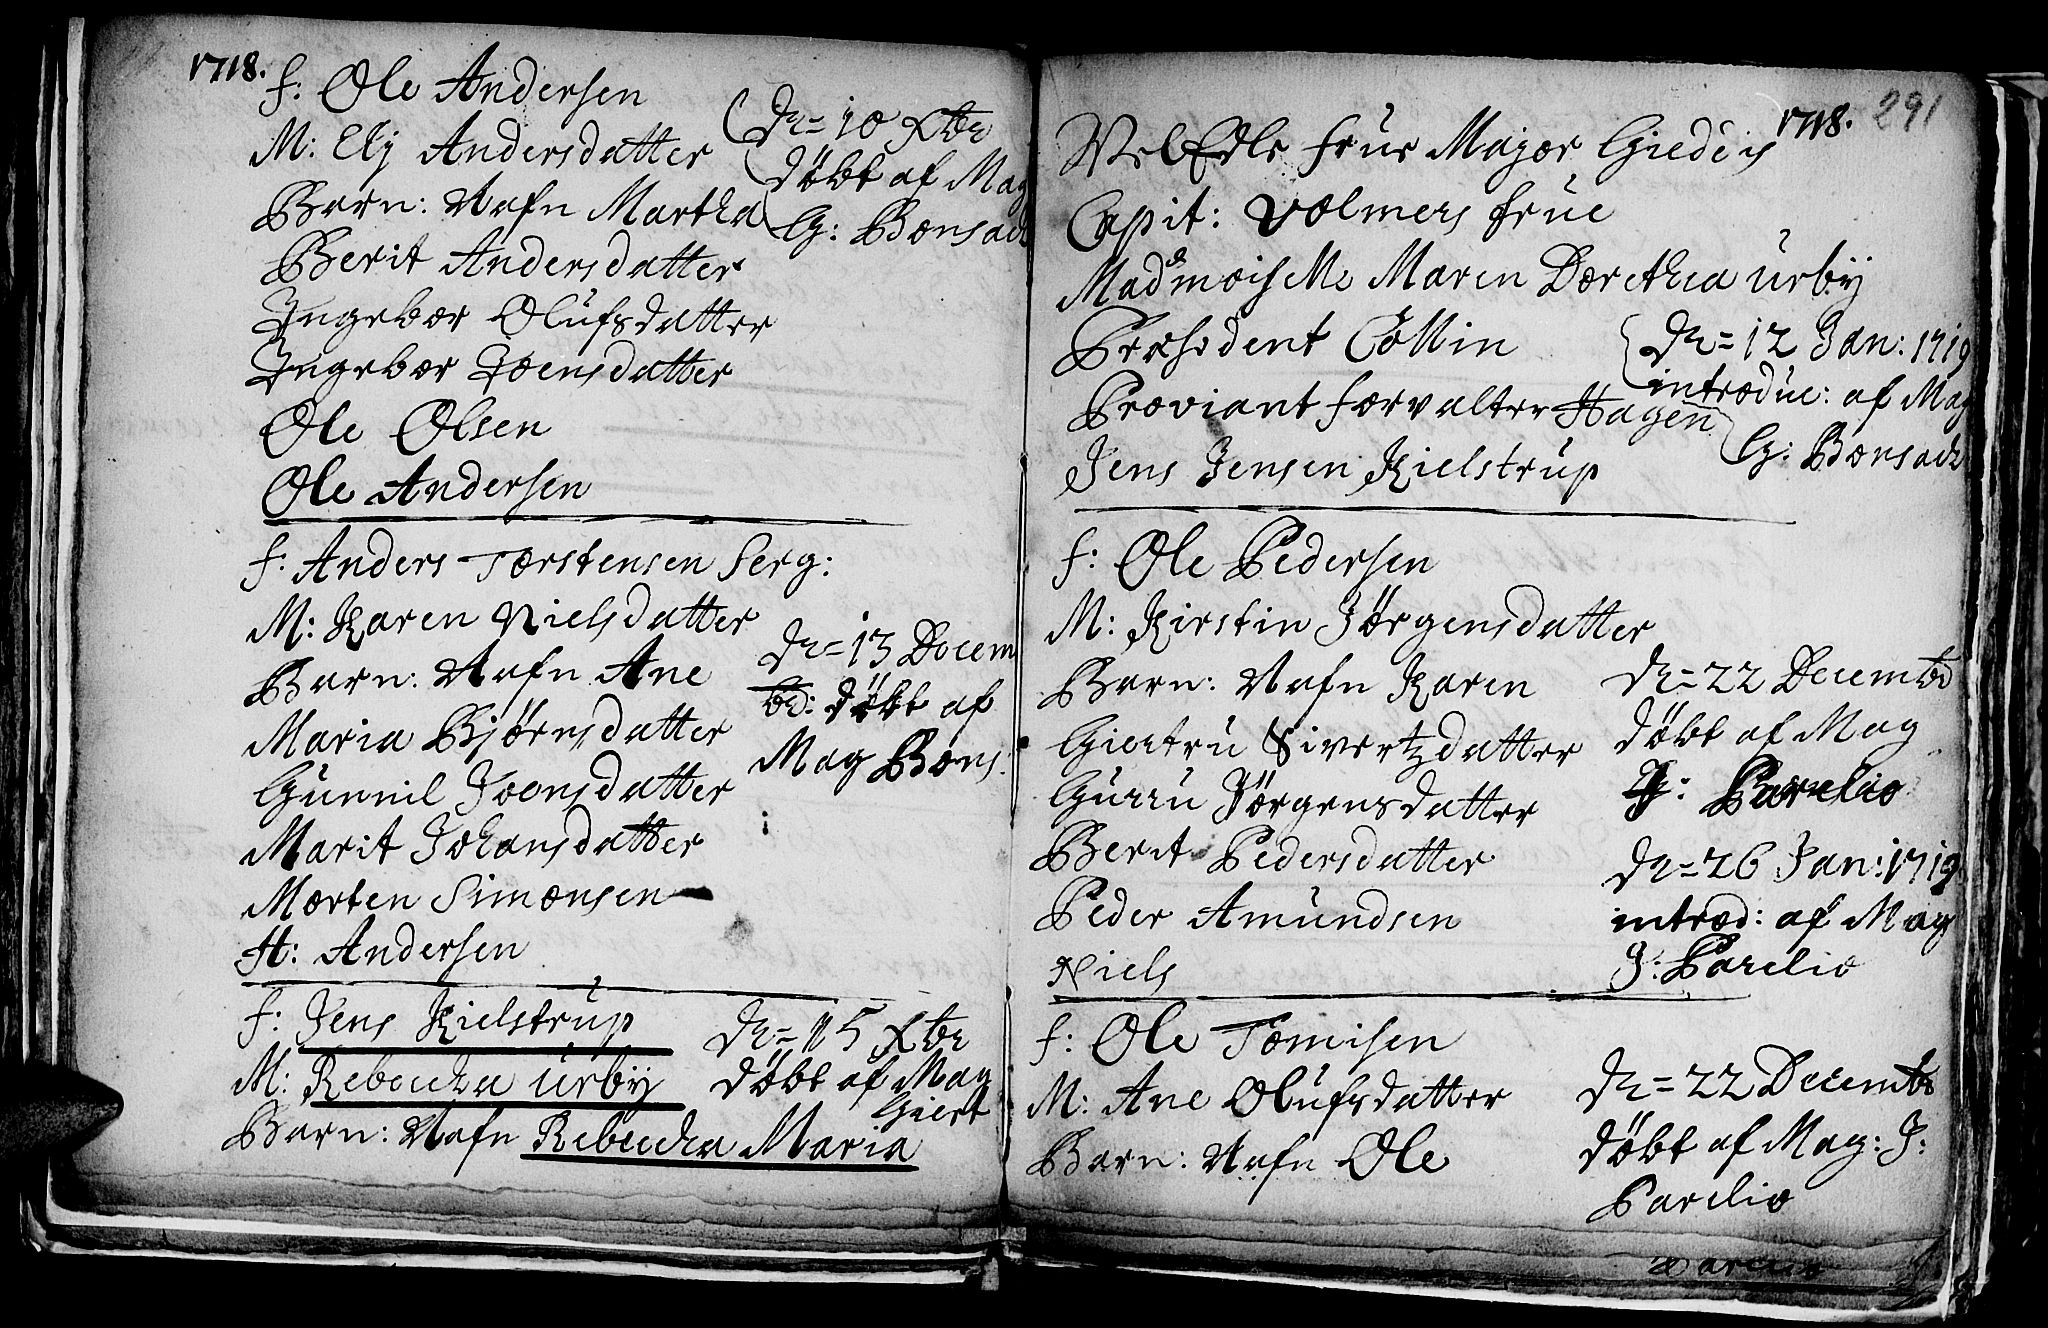 1718.
f: Ole Andersen
M: Elj Andersdatter
Barn: Nafn Martha
Berit Andersdatter
Ingebor Olüfsdatter
Ingebor Joensdatter
Ole Olsen
Ole Andersen
D= 10 Xbr
døbt af Mag
G: Bonsach
f: Anders Torstensen Serg:
M: Karen Nielsdatter
Barn: Nafn Ane
Maria Bjørnsdatter
Gunnil Joensdatter
Marit Johansdatter
Morten Simonsen
H: Andersen
D= 13 Decem
br: døbt af
Mag Bons:
f: Jens Kielstrüp
M: Rebecka Ürby
Barn: Nafn Rebecka Maria
D= 15 Xbr
døbt af Mag
Giert
1718. 291
VelEdle früe Major Giedeis
Capit: Volmers früe
Madmoiselle Maren Dorethea Ürby
Præsident Collin
Proviantforvalter Hagen
Jens Jensen Kielstrüp
D= 12 Jan: 1719
introduc: af Mag
G: Bonsach
f: Ole Pedersen
M: Kirstin Jørgensdatter
Barn: Nafn Karen
Giertru Sivertzdatter
Gurru Jørgensdatter
Berit Pedersdatter
Peder Amundsen
Niels
D= 22 Decembr
døbt af Mag
J: Parelio
D= 26 Jan: 1719
introd: af Mag
J: Parelio
f: Ole Tomisen
M: Ane Olüfsdatter
Barn: Nafn Ole
D= 22 Decembr
døbt af Mag: J:
Parelio